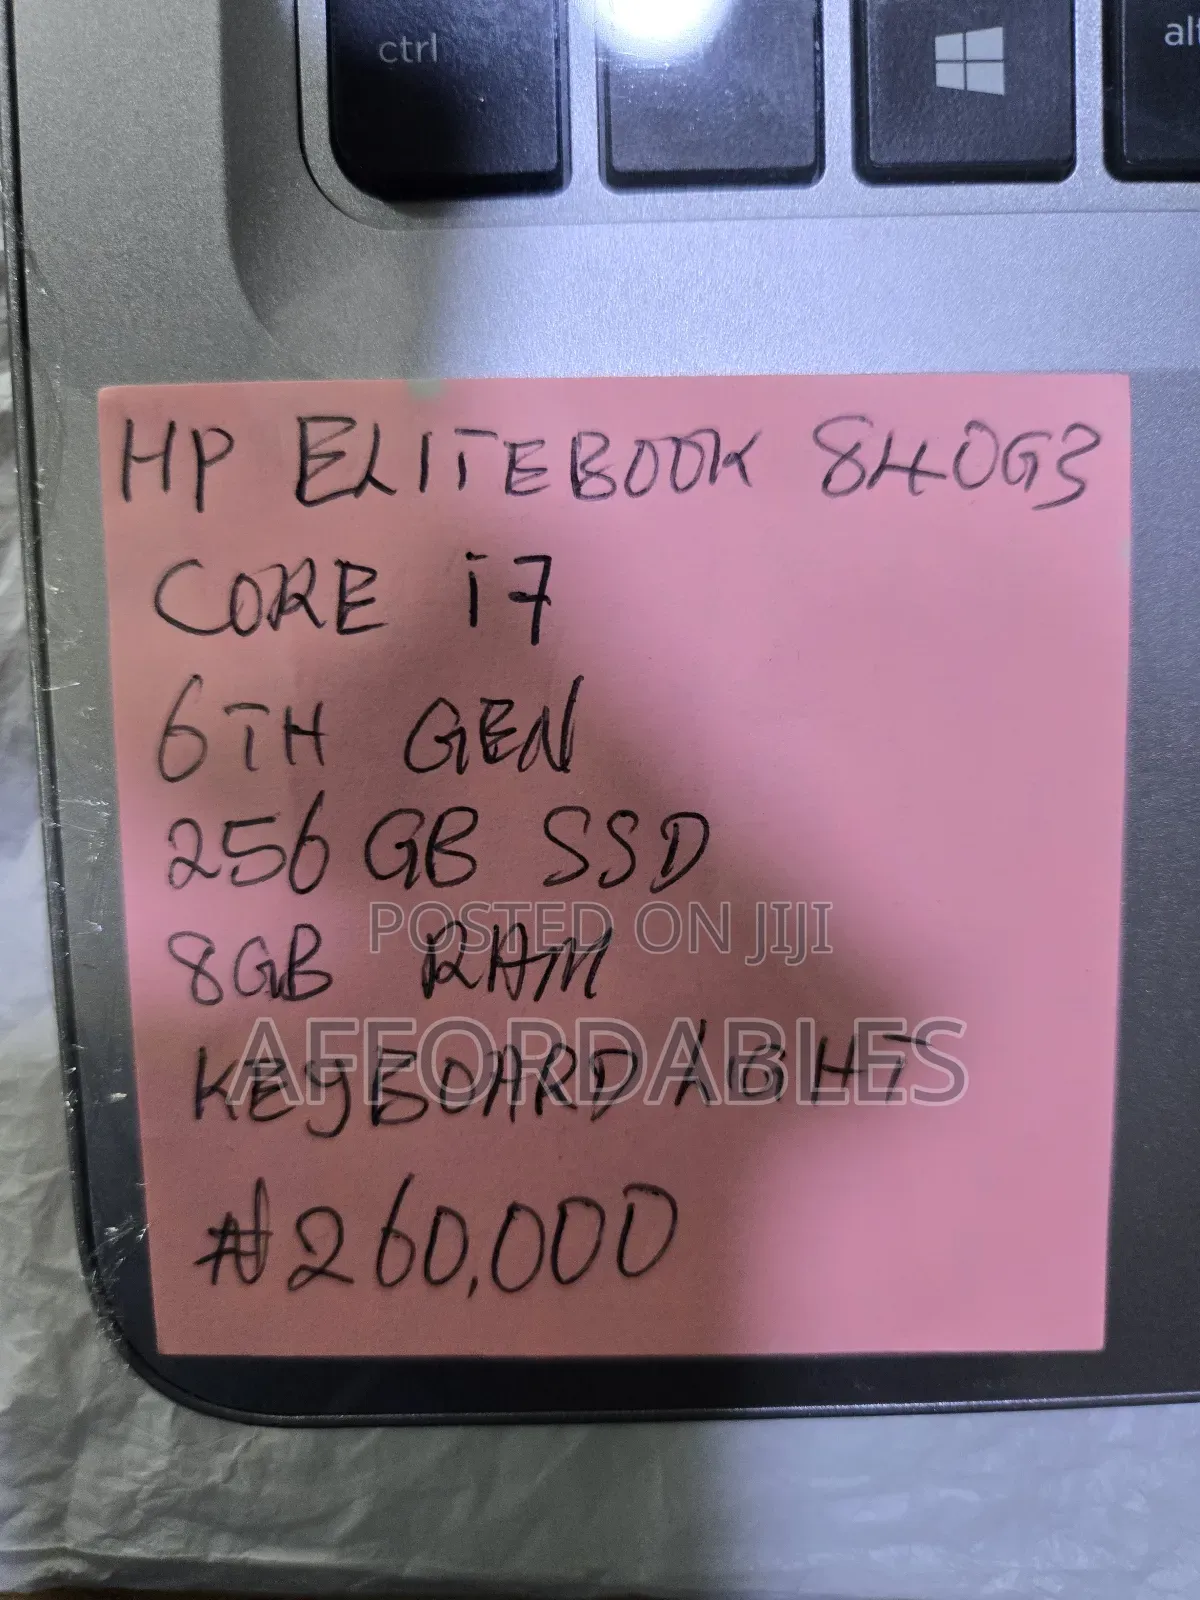 ctrl
alt
HP ELITEBOOK 840G3
CORE i7
6TH GEN
256GB SSD
POSTED ON JIJI
8GB RAM
AFFORDABLES
KEYBOARD LIGHT
₦260,000